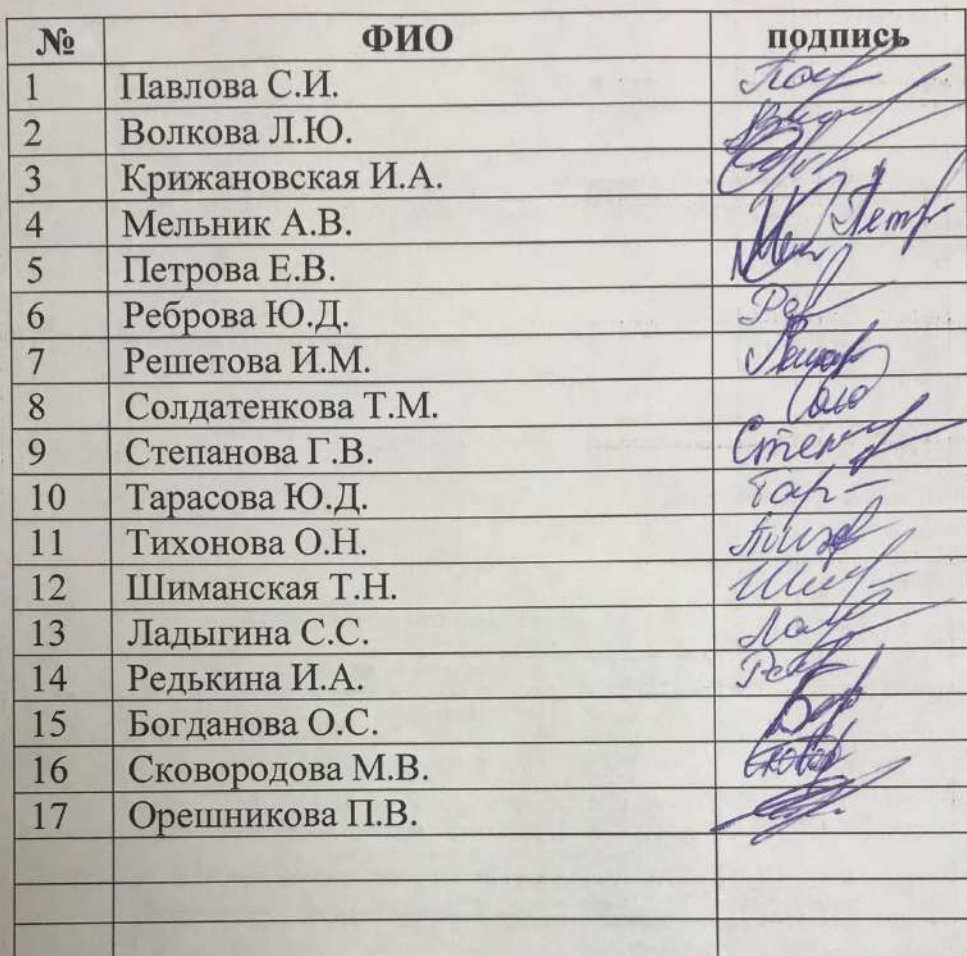 № ФИО подпись
1 Павлова С.И.
2 Волкова Л.Ю.
3 Крижановская И.А.
4 Мельник А.В.
5 Петрова Е.В. Петр
6 Реброва Ю.Д.
7 Решетова И.М.
8 Солдатенкова Т.М.
9 Степанова Г.В.
10 Тарасова Ю.Д.
11 Тихонова О.Н.
12 Шиманская Т.Н.
13 Ладыгина С.С.
14 Редькина И.А.
15 Богданова О.С.
16 Сковородова М.В.
17 Орешникова П.В.